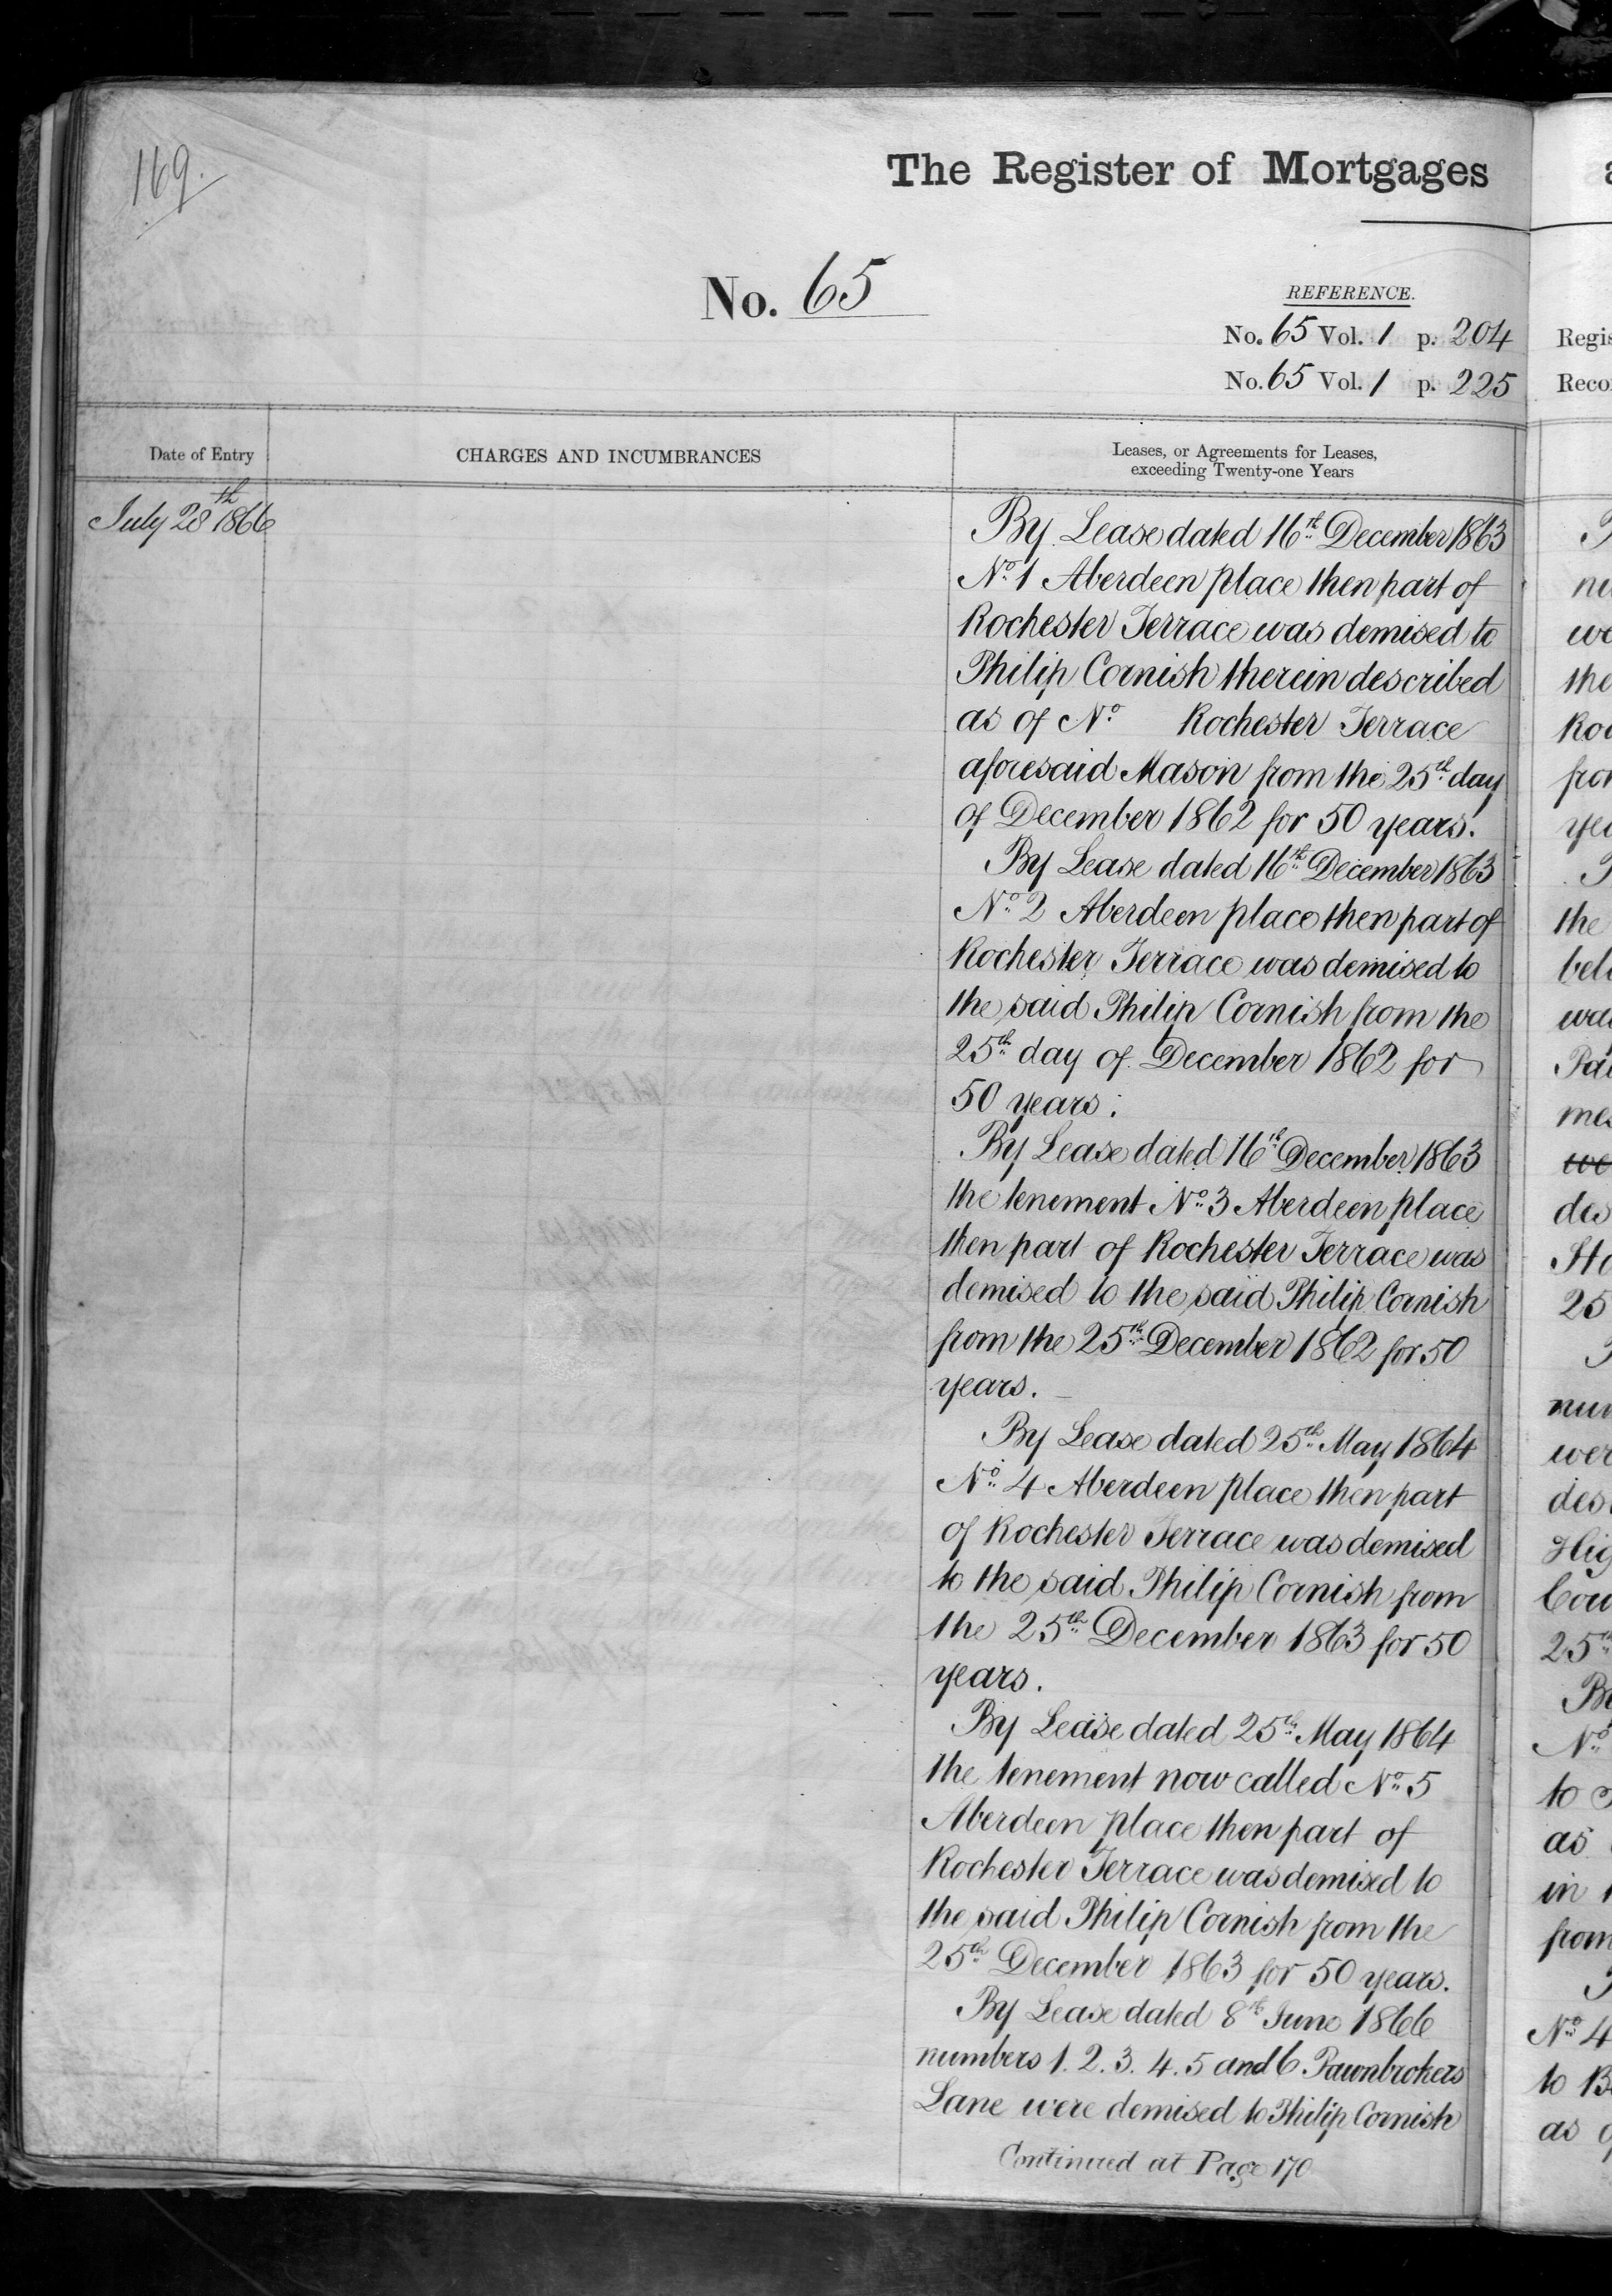 169.
The Register of Mortgages
No. 65
REFERENCE.
No. 65 Vol. 1 p. 204
No. 65 Vol. 1 p. 225
Date of Entry
CHARGES AND INCUMBRANCES
Leases, or Agreements for Leases,
exceeding Twenty-one Years
July 28th 1866
By Lease dated 16th December 1863
No. 1 Aberdeen place then part of
Rochester Terrace was demised to
Philip Cornish therein described
as of No. Rochester Terrace
aforesaid Mason from the 25th day
of December 1862 for 50 years.
By Lease dated 16th December 1863
No. 2 Aberdeen place then part of
Rochester Terrace was demised to
the said Philip Cornish from the
25th day of December 1862 for
50 years.
By Lease dated 16th December 1863
the tenement No. 3 Aberdeen place
then part of Rochester Terrace was
demised to the said Philip Cornish
from the 25th December 1862 for 50
years.
By Lease dated 25th May 1864
No. 4 Aberdeen place then part
of Rochester Terrace was demised
to the said Philip Cornish from
the 25th December 1863 for 50
years.
By Lease dated 25th May 1864
the tenement now called No. 5
Aberdeen place then part of
Rochester Terrace was demised to
the said Philip Cornish from the
25th December 1863 for 50 years.
By Lease dated 8th June 1866
numbers 1. 2. 3. 4. 5 and 6 Pawnbrokers
Lane were demised to Philip Cornish
Continued at Page 170